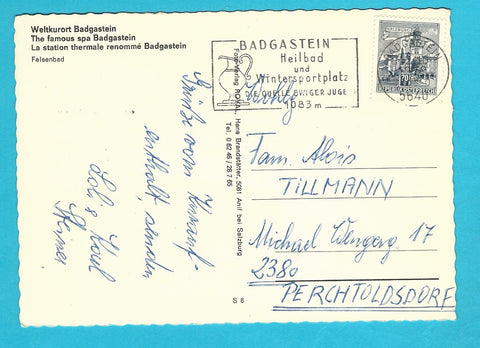 Weltkurort Badgastein
The famous spa Badgastein
La station thermale renommé Badgastein
Felsenbad
Grüße vom
senden
Foto-Verlag ROYAL, Hans Brandstätter, 5081 Anif bei Salzburg
Tel. 0 62 46 / 28 7 65
S 6
BADGASTEIN
Heilbad
und
Wintersportplatz
DIE QUELLE EWIGER JUGE
1083 m
BADGASTEIN
5640
REPUBLIK ÖSTERREICH
Fam. Alois
TILLMANN
Michael Wengerg. 17
2380
PERCHTOLDSDORF